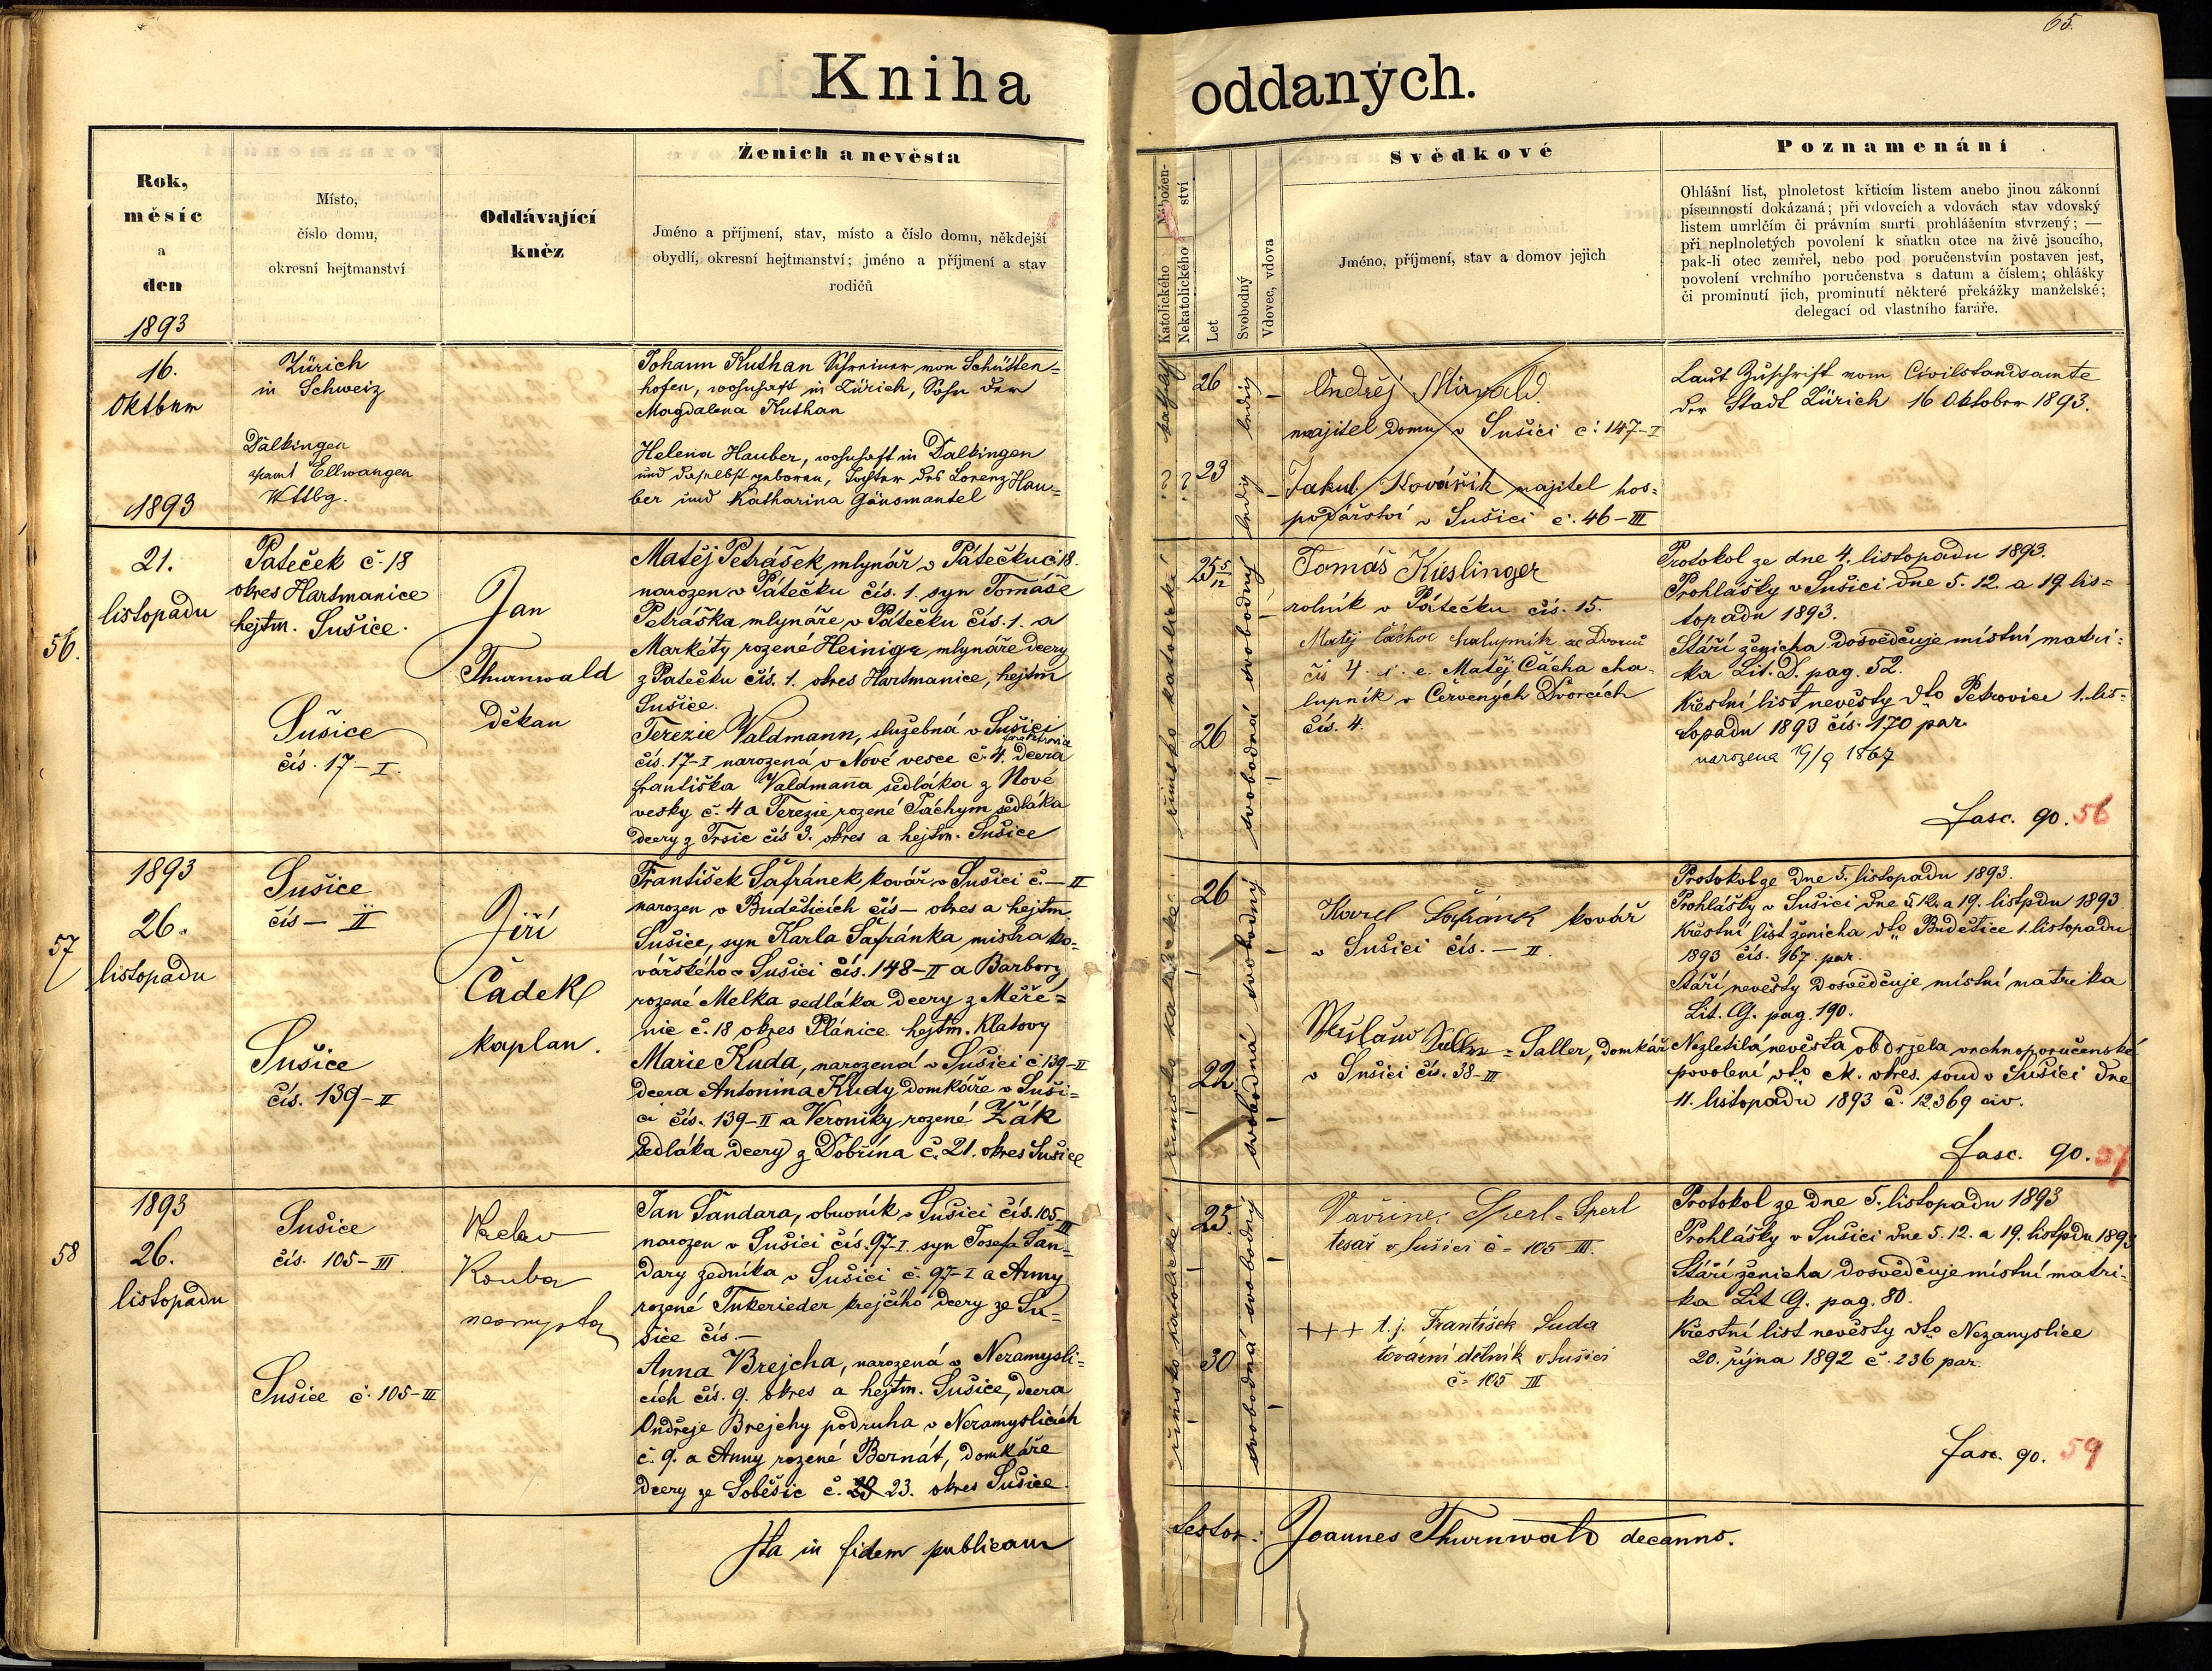 65.
Kniha oddaných.
Rok,
měsíc
a
den
1893
Místo,
číslo domu,
okresní hejtmanství
Oddávající
kněz
Ženich a nevěsta
Jméno a příjmení, stav, místo a číslo domu, někdejší
obydlí, okresní hejtmanství; jméno a příjmení a stav
rodičů
Nábožen-
ství
Katolického
Nekatolického
Let
Svobodný
Vdovec, vdova
Svědkové
Jméno, příjmení, stav a domov jejich
Poznamenání
Ohlášní list, plnoletost křticím listem anebo jinou zákonní
písemností dokázaná; při vdovcích a vdovách stav vdovský
listem umrlčím či právním smrti prohlášením stvrzený; —
při neplnoletých povolení k sňatku otce na živě jsoucího,
pak-li otec zemřel, nebo pod poručenstvím postaven jest,
povolení vrchního poručenstva s datum a číslem; ohlášky
či prominutí jich, prominutí některé překážky manželské;
delegací od vlastního faráře.
16.
Oktbnr
1893
Zürich
in Schweiz
Dalkingen
Ellwangen
Wttbg.
Johann Kuthan Schreiner von Schütten=
hofen, wohnhaft in Zürich, Sohn der
Magdalena Kuthan
Helena Hauber, wohnhaft in Dalkingen
und daselbst geboren, Tochter des Lorenz Hau=
ber und Katharina Gänsmantel
26
ledig
? ?
23
ledig
Ondřej Mirvald.
majitel domu v Sušici č: 147–I
Jakub Kovářík majitel hos=
podářství v Sušici č. 46–III
Laut Zuschrift vom Civilstandsamte
der Stadt Zürich 16 Oktober 1893.
56.
21.
listopadu
Páteček č. 18
okres Hartmanice
hejtm. Sušice.
Sušice
čís. 17–I.
Jan
Thurnwald
Děkan
Matěj Petrášek, mlynář v Pátečku č 18.
narozen v Pátečku čís. 1. syn Tomáše
Petráška mlynáře v Pátečku čís. 1. a
Markéty rozené Heinige mlynáře dcery
z Pátečku čís. 1. okres Hartmanice, hejtm
Sušice.
Terezie Valdmann, služebná v Sušici
čís. 17–I narozená v Nové vesce č. 4. dcera
Františka Valdmanna sedláka z Nové
vesky č. 4 a Terezie rozené Jáchym sedláka
dcery z Trsic čís 3. okres a hejtm. Sušice
římsko katolické
25 5/12
svobodný
26
svobodná
Tomáš Kieslinger
rolník v Pátečku čís. 15.
Matěj Čáchoc chalupník ze Dvorců
čís 4. i. e. Matěj Čácha cha-
lupník v Červených Dvorcích
čís. 4.
Protokol ze dne 4. listopadu 1893.
Prohlášky v Sušici dne 5. 12. a 19. lis=
topadu 1893.
Stáří ženicha dosvědčuje místní matri=
ka Lit. D. pag. 52.
Křestní list nevěsty dto Petrovice 1. lis=
topadu 1893 čís. 170 par.
narozena 19/9 1867
fasc. 90. 56
57
1893
26.
listopadu
Sušice
čís — II
Sušice
čís. 139–II
Jiří
Čadek
kaplan.
František Šafránek kovář v Sušici č. — II
narozen v Budětících čís — okres a hejtm.
Sušice, syn Karla Šafránka mistra ko=
vářského v Sušici čís. 148–II a Barbory
rozené Melka sedláka dcery z Měře=
nic č. 18 okres Plánice hejtm. Klatovy
Marie Kuda, narozená v Sušici č. 139–II
dcera Antonína Kudy domkáře v Suši=
ci čís. 139–II a Veroniky rozené Žák
sedláka dcery z Dobřína č. 21. okres Sušice
římsko katolické
26
svobodný
22
svobodná
Karel Šafránek kovář
v Sušici čís. — II.
Saller, domkář
v Sušici čís. 38–III
Protokol ze dne 5. listopadu 1893.
Prohlášky v Sušici dne 5. 12. a 19. listpdu 1893
Křestní list ženicha dto Budětice 1. listopadu
1893 čís. 167. par.
Stáří nevěsty dosvědčuje místní matrika
Lit. G. pag. 190.
Nezletilá nevěsta obdržela vrchnoporučenské
povolení dto ck. okres. soud v Sušici dne
11. listopadu 1893 č. 12.369 civ.
fasc. 90. 57
58
1893
26.
listopadu
Sušice
čís. 105–III.
Sušice č. 105–III
Václav
Kouba
Jan Šandara, obuvník v Sušici čís. 105–III
narozen v Sušici čís. 97–I. syn Josefa Šan=
dary zedníka v Sušici č. 97–I a Anny
rozené Tukerieder krejčího dcery ze Su=
šice čís. —
Anna Brejcha, narozená v Nezamysli=
cích čís. 9. okres a hejtm. Sušice, dcera
Ondřeje Brejchy podruha v Nezamyslicích
č. 9. a Anny rozené Bernát, domkáře
dcery ze Soběšic č. 23. okres Sušice.
římsko katolické
25
svobodný
30
svobodná
Vavřinec Sperl = Sperl
tesař v Sušici č= 105 III.
+++ t. j. František Suda
tovární dělník v Sušici
č= 105 III
Protokol ze dne 5. listopadu 1893
Prohlášky v Sušici dne 5. 12. a 19. listpdu 1893
Stáří ženicha dosvědčuje místní matri-
ka Lit G. pag. 80.
Křestní list nevěsty dto Nezamyslice
20. října 1892 č. 236 par.
fasc. 90. 59
Ita in fidem publicam
testor: Joannes Thurnwald decanus.